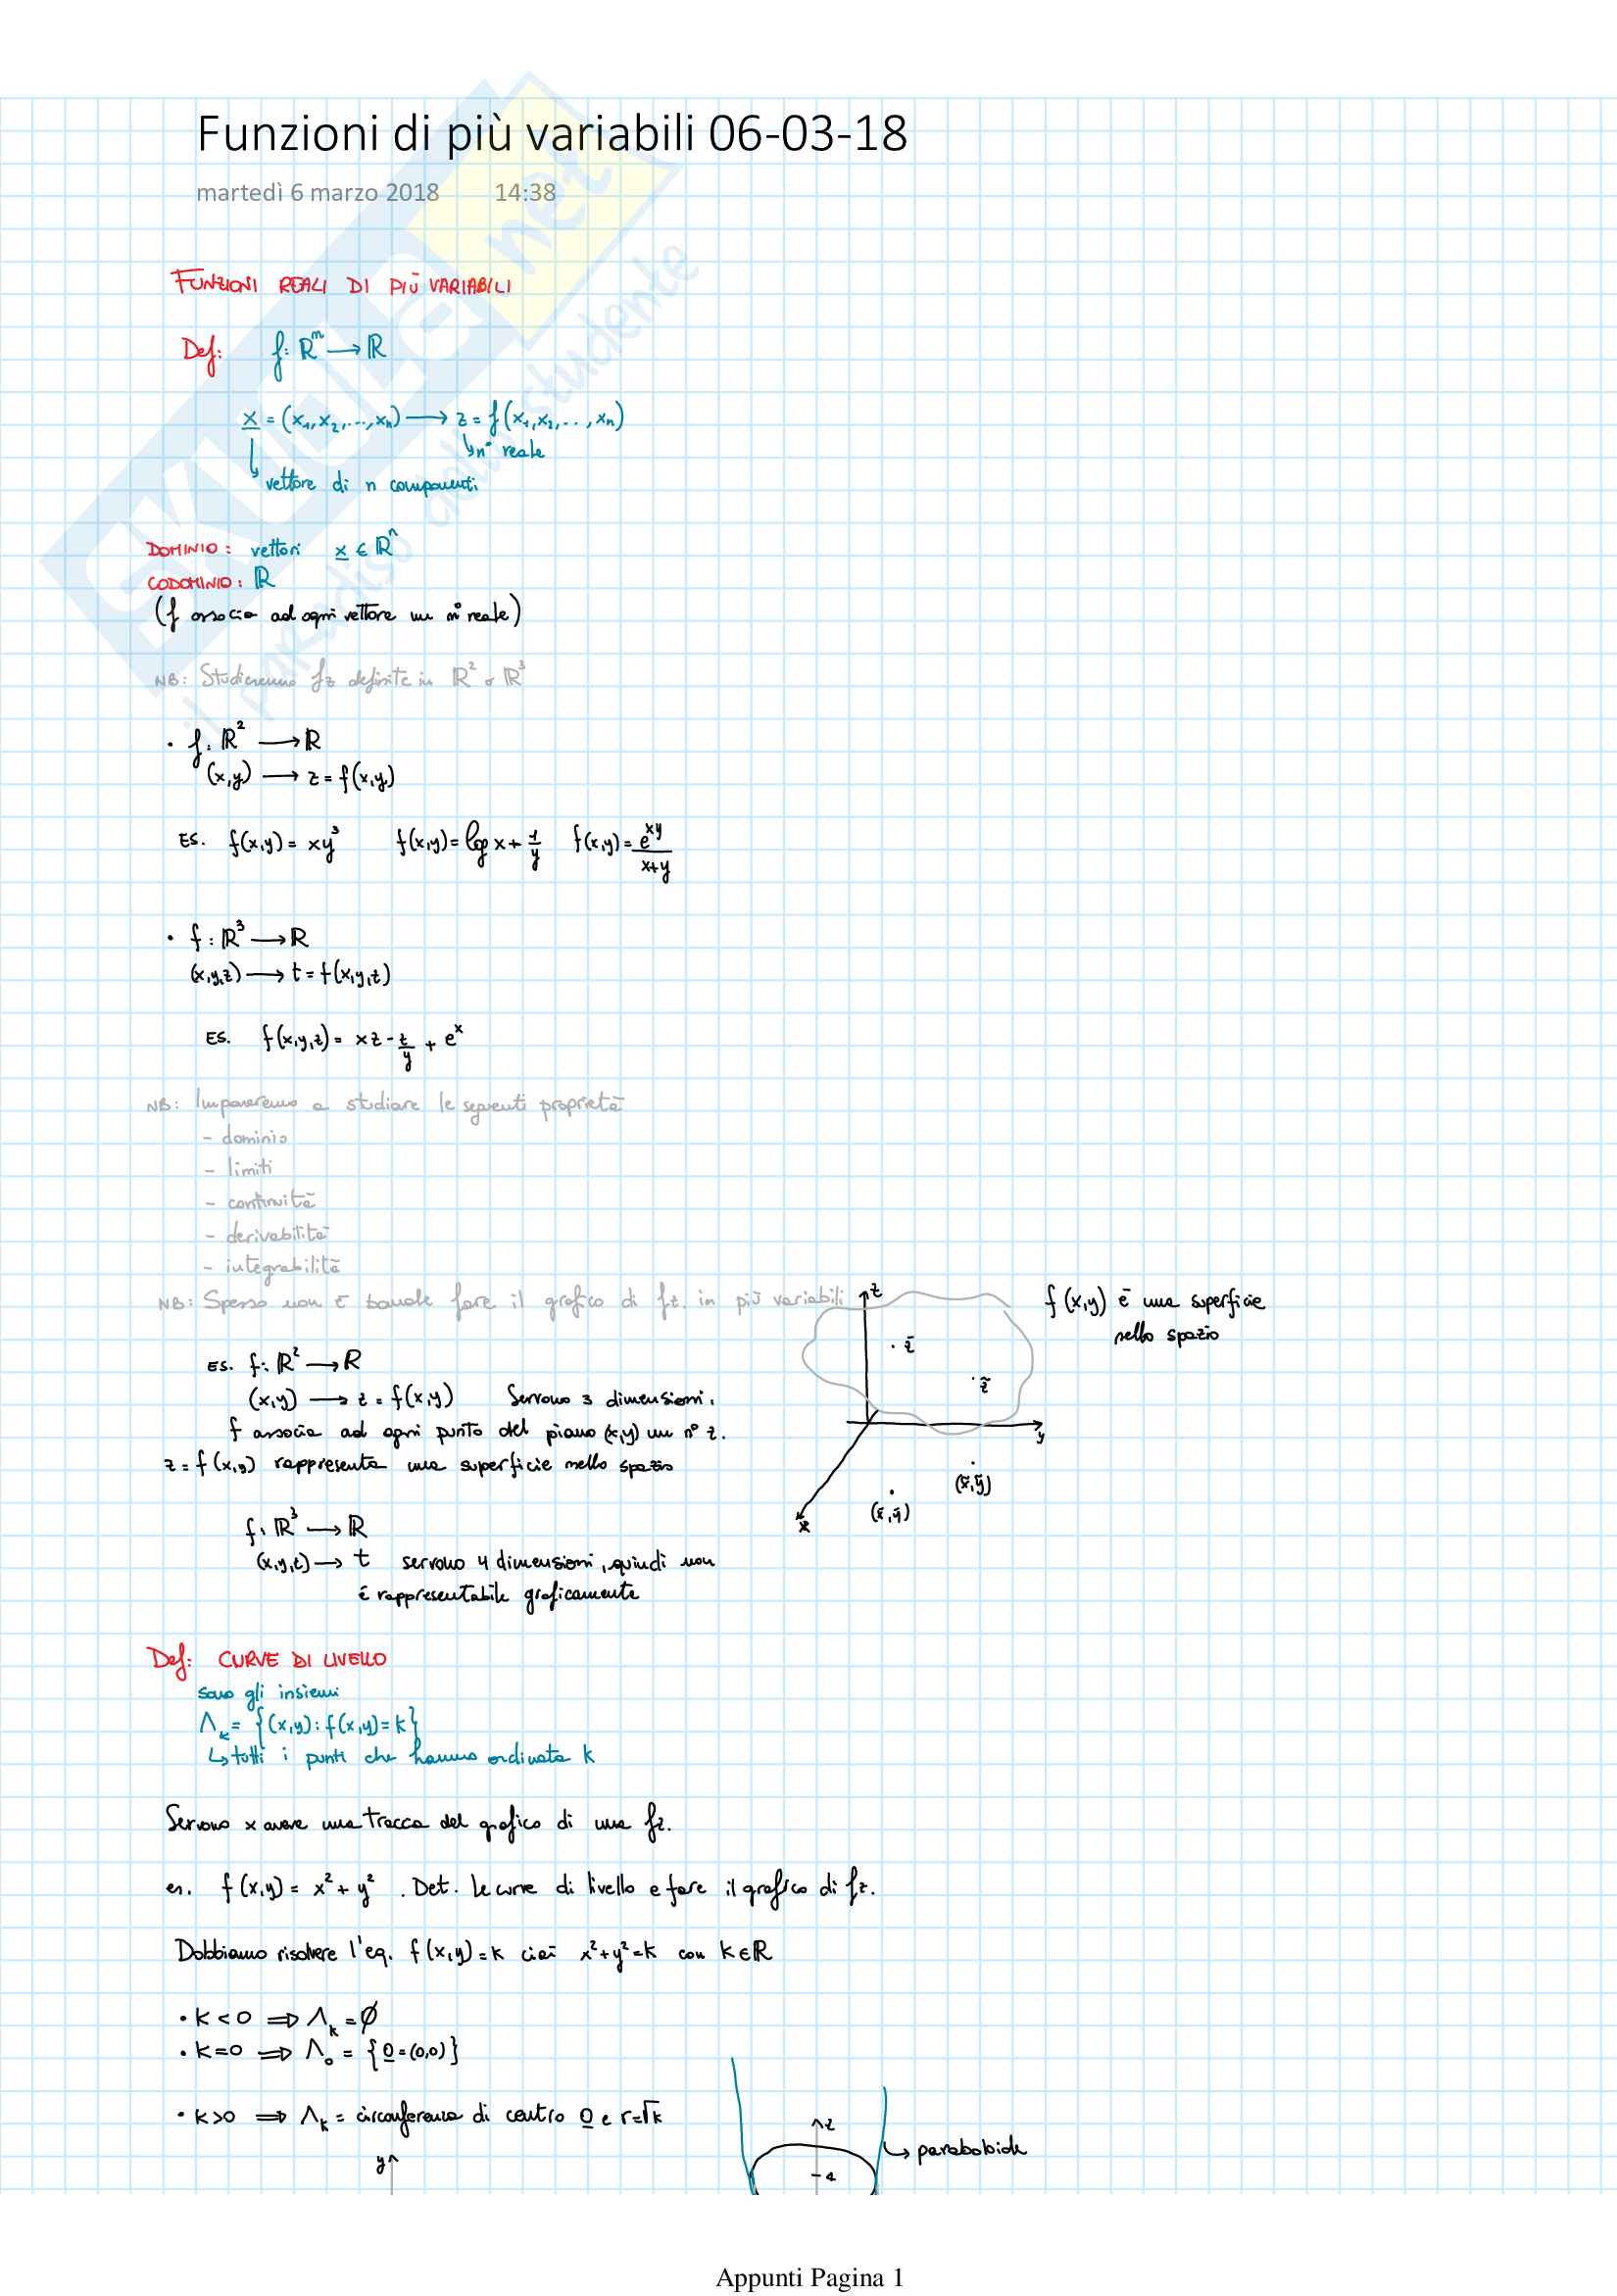 Funzioni di più variabili 06-03-18
martedì 6 marzo 2018 14:38
FUNZIONI REALI DI PIÙ VARIABILI
Def: f: ℝⁿ → ℝ
x = (x₁, x₂, ..., xₙ) → z = f(x₁, x₂, ..., xₙ)
↳ n° reale
↳ vettore di n componenti
DOMINIO: vettori x ∈ ℝⁿ
CODOMINIO: ℝ
(f associa ad ogni vettore un n° reale)
NB: Studieremo fz definite in ℝ² o ℝ³
• f: ℝ² → ℝ
(x,y) → z = f(x,y)
ES. f(x,y) = xy³ f(x,y) = log x + 1/y f(x,y) = e^xy/(x+y)
• f: ℝ³ → ℝ
(x,y,z) → t = f(x,y,z)
ES. f(x,y,z) = xz - z/y + e^x
NB: Impareremo a studiare le seguenti proprietà
- dominio
- limiti
- continuità
- derivabilità
- integrabilità
NB: Spesso non è banale fare il grafico di fz. in più variabili
z
f(x,y) è una superficie
nello spazio
z̄
z̃
y
(x̃,ỹ)
(x̄,ȳ)
x
ES. f: ℝ² → ℝ
(x,y) → z = f(x,y) Servono 3 dimensioni.
f associa ad ogni punto del piano (x,y) un n° z.
z = f(x,y) rappresenta una superficie nello spazio
f: ℝ³ → ℝ
(x,y,z) → t servono 4 dimensioni, quindi non
è rappresentabile graficamente
Def: CURVE DI LIVELLO
sono gli insiemi
Λₖ = {(x,y): f(x,y) = k}
↳ tutti i punti che hanno ordinata k
Servono x avere una traccia del grafico di una fz.
es. f(x,y) = x² + y². Det. le curve di livello e fare il grafico di fz.
Dobbiamo risolvere l'eq. f(x,y) = k cioè x² + y² = k con k ∈ ℝ
• k < 0 ⇒ Λₖ = ∅
• k = 0 ⇒ Λ₀ = {0 = (0,0)}
• k > 0 ⇒ Λₖ = circonferenza di centro 0 e r = √k
y
z
4
↳ paraboloide
Appunti Pagina 1
SKUOLA.net
il paradiso dello studente